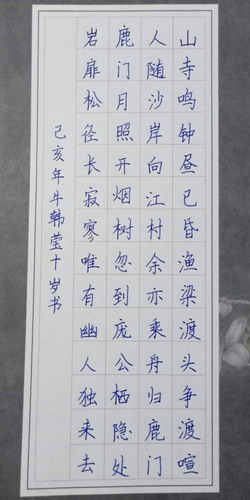 山寺鸣钟昼已昏渔梁渡头争渡喧
人随沙岸向江村余亦乘舟归鹿门
鹿门月照开烟树忽到庞公栖隐处
岩扉松径长寂寥唯有幽人独来去
己亥年牛韩莹十岁书